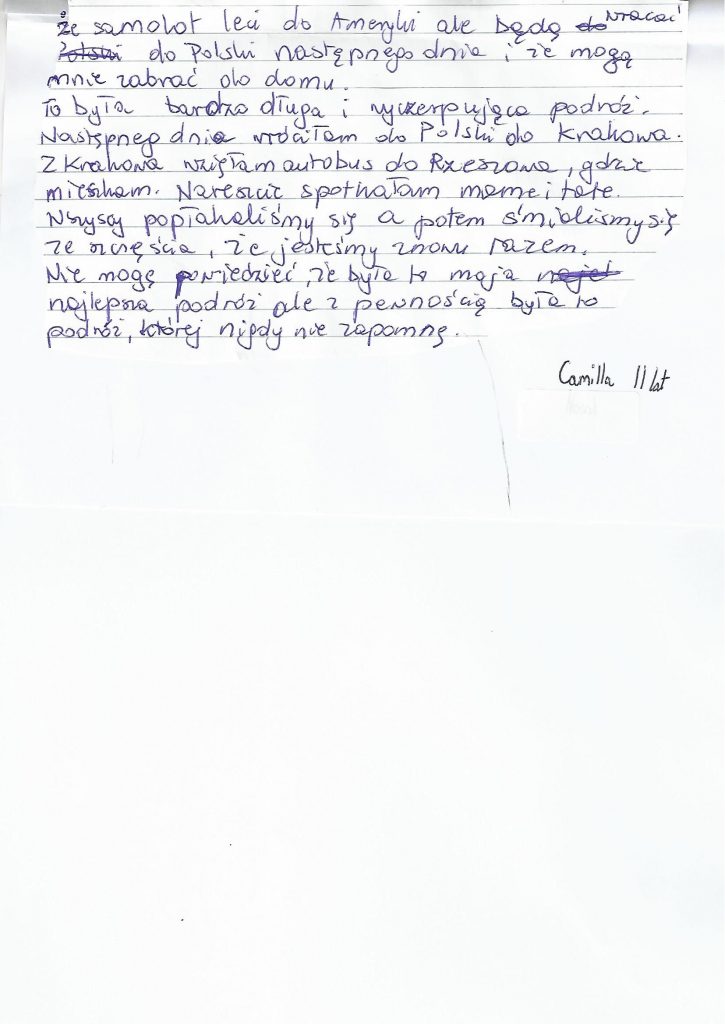 że samolot leci do Ameryki ale będą wracać
do Polski następnego dnia i że mogą
mnie zabrać do domu.
To była bardzo długa i wyczerpująca podróż.
Następneg dnia wróciłam do Polski do Krakowa.
Z Krakowa wzięłam autobus do Rzeszowa, gdzie
mieszkam. Nareszcie spotkałam mame i tate.
Wszyscy popłakaliśmy się a potem śmialismy się
ze szczęścia, że jesteśmy znowu razem.
Nie mogę powiedzieć, że była to moja
najlepsza podróż ale z pewnością była to
podróż, której nigdy nie zapomnę.
Camilla 11 lat